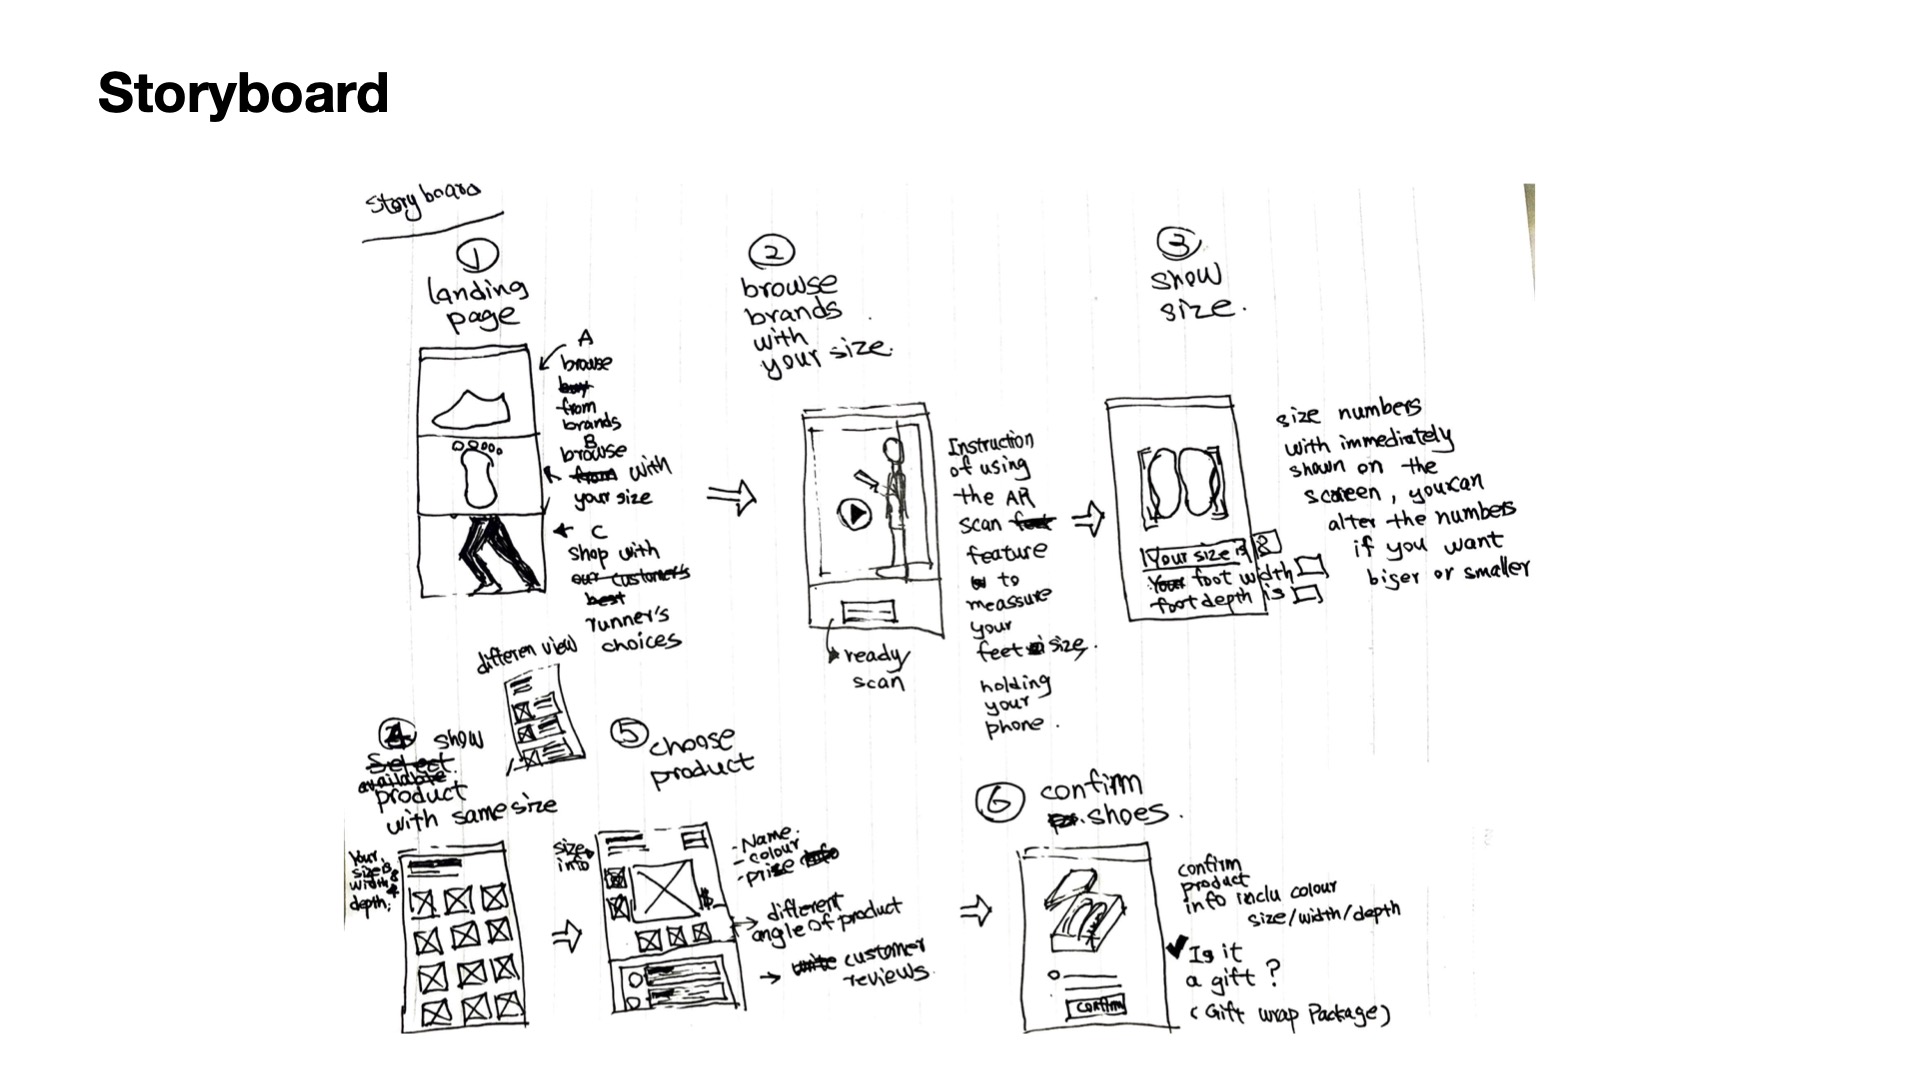 Storyboard
Story board
1
landing
page
A
browse
buy
from
brands
B
browse
from with
your size
C
shop with
our customer's
best
runner's
choices
2
browse
brands
with
your size.
Instruction
of using
the AR
scan feet
feature
to
meassure
your
feet size.
holding
your
phone.
ready
scan
3
show
size.
Your size is 8
Your foot width
foot depth is
size numbers
with immediately
shown on the
screen, you can
alter the numbers
if you want
biger or smaller
differen view
4 show
Select
available
product
with same size
Your
size &
width &
depth.
5 choose
product
size
info
- Name.
- colour
- prize info
$
different
angle of product
write customer
reviews.
6 confirm
shoes.
confirm
confirm
product
info inclu colour
size/width/depth
Is it
a gift?
(Gift wrap Package)